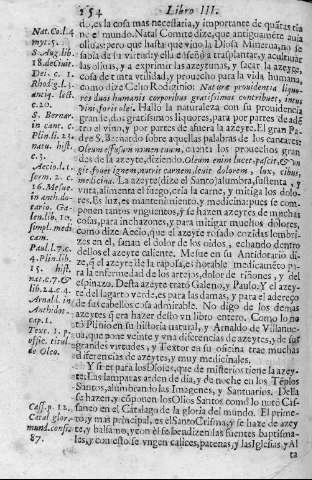 254 Libro III.
do, es la cosa mas necessaria, y importante de quātas tiene
ne el mundo. Natal Comite dize, que antiguamẽte auia
oliuas; pero que hasta que vino la Diosa Minerua, no se
sabia de la virtud, y ella enseñó a trasplantar, y acultiuar
las oliuas, y a exprimir las azeytunas, y sacar la azeyte,
cosa de tanta vtilidad, y prouecho para la vida humana,
como dize Celio Rodiginio: Naturæ prouidentia liquores
duos humanis corporibus gratissimos contribuet, intus
vini, foris olei. Hallo la naturaleza con su prouidencia
grande, dos gratissimos liquores, para por partes de adẽ
tro el vino, y por partes de afuera la azeyte. El gran Padre
S. Bernardo sobre aquellas palabras de los cantares:
Oleum effusum nomen tuum, cuenta los prouechos grandes
de la azeyte, diziendo. Oleum enim lucet, pascit, & vngit,
fouet ignem, nutrit carnem, leuit dolorem, lux, cibus,
medicina. La azeyte (dize el Santo) alumbra, sustenta, y
vnta, alimenta el fuego, cria la carne, y mitiga los dolores.
Es luz, es mantenimiento, y medicina: pues se componen
tantos vnguentos, y se hazen azeytes de muchas
cosas, para inchazones, y para mitigar muchos dolores,
como dize Aecio, que el azeyte rosado cozidas lombrizes
en el, sanan el dolor de los oidos, echando dentro
dellos el azeyte caliente. Mesue en su Antidotario dize,
para la enfermedad de los artejos, dolor de riñones, y del
espinazo. Desta azeyte trató Galeno, y Paulo. Y el azeyte
del lagarto verde, es para las damas, y para el adereço
de sus cabellos cosa admirable. No digo de los demas
azeytes q̃ era hazer desto vn libro entero. Como lo notó
Plinio en su historia natural, y Arnaldo de Villanueua,
que pone veinte y vna diferencias de azeytes, y de sus
grandes virtudes, y Textor en su oficina trae muchas
diferencias de azeytes, y muy medicinales.
do de noche en los Tẽplos
Santos, alumbrando las Imagenes, y Santuarios. Della
se hazen, y cõponen los Olios Santos como lo notó Cassaneo
en el Catalago de la gloria del mundo. El primero,
y mas principal, es el Santo Crisma, y se haze de azeyte,
y balsamo, y con el se bendizen las fuentes baptismales,
y con esto se vngen calices, patenas, y las Iglesias, y Al
ta
Nat. Co. l. 4
S. Aug. lib.
18. de Ciuit.
Dei. c.
Rhodig. l.
antiq. lect.
c. 20.
S. Bernar.
in cant. c.
Plin. li. 23.
natu. hist.
c. 3.
ferm. 2. c.
16. Mesue
in antidotario.
Galen.
lib. 10.
simpl. medicam.
Paul. l. 7. c.
4. Plin. lib.
15. hist.
nat. c. 7. &
lib. 24. c. 4.
Arnald. in
Antidos.
cap. 1.
Text. 1. p.
offic. titul.
de Oleo.
Cass. p. 12.
Catal. glor.
mund. consid.
87.